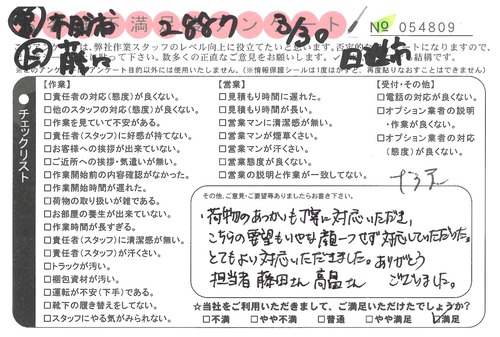 満足 アンケート № 054809
2887 3/30
弊社作業スタッフのレベル向上に役立てたいと思います。
下さい。数多くの正直なご意見をお願いします。
アンケート目的以外には使用いたしません。(※情報保護シールは1度はがすと、再度貼りなおすことはできません)
チェックリスト
【作業】
□責任者の対応(態度)が良くない。
□他のスタッフの対応(態度)が良くない。
□作業を見ていて不安がある。
□責任者(スタッフ)に好感が持てない。
□お客様への挨拶が出来ていない。
□ご近所への挨拶・気遣いが無い。
□作業開始前の内容確認がなかった。
□作業開始時間が遅れた。
□荷物の取り扱いが雑である。
□お部屋の養生が出来ていない。
□作業時間が長すぎる。
□責任者(スタッフ)に清潔感が無い。
□責任者(スタッフ)が汗くさい。
□トラックが汚い。
□梱包資材が汚い。
□運転が不安(下手)である。
□靴下の履き替えをしてない。
□スタッフにやる気がみられない。
【営業】
□見積もり時間に遅れた。
□見積もり時間が長い。
□営業マンに清潔感が無い。
□営業マンが煙草くさい。
□営業マンが汗くさい。
□営業態度が良くない。
□営業の説明と作業が一致してない。
【受付・その他】
□電話の対応が良くない。
□オプション業者の説明
・作業が良くない。
□オプション業者の対応
(態度)が良くない。
その他、ご意見・ご要望等ありましたらお書き下さい。
・荷物のあつかいも丁寧に対応いただき、
こちらの要望もいやな顔一つせず対応していただいた。
とてもよい対応いただきました。ありがとう
ございました。
担当者 藤田さん 高畠さん
☆当社をご利用いただきまして、ご満足いただけたでしょうか?
□不満 □やや不満 □普通 □やや満足 ☑満足